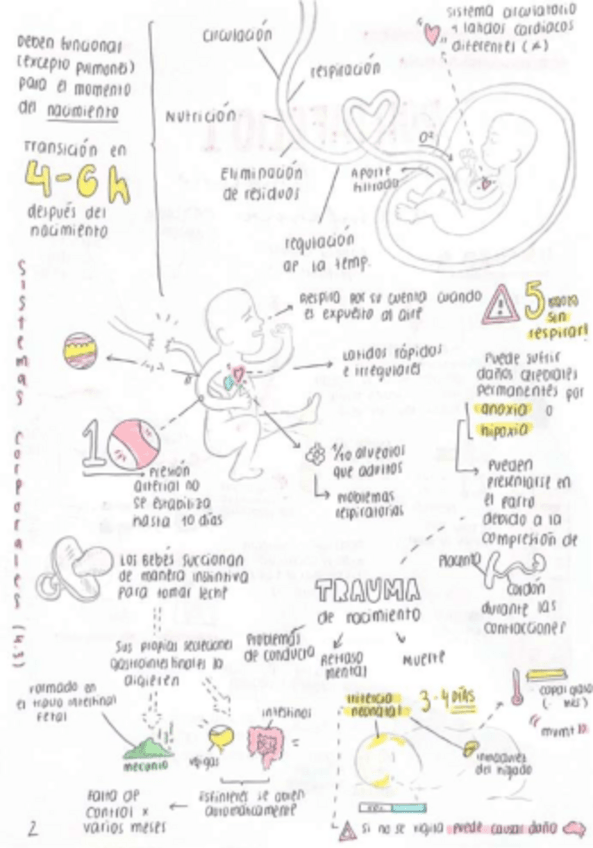 Deben funcionar
(excepto pulmones)
para el momento
del nacimiento
Transición en
4-6 h
después del
nacimiento
Circulación
respiración
Nutrición
Eliminación
de residuos
regulación
de la temp.
Aporte
filtrado
O²
sistema circulatorio
y latidos cardíacos
diferentes
Sistemas corporales (4.3)
Respira por su cuenta cuando
es expuesto al aire
5
sin
respirar!
Latidos rápidos
e irregulares
Puede sufrir
daños cerebrales
permanentes por
anoxia o
hipoxia
1/10 alveolos
que adultos
Problemas
respiratorias
10
Presión
arterial no
se estabiliza
hasta 10 días
Pueden
presentarse en
el parto
debido a la
compresión de
Placenta
Cordón
durante las
contracciones
Los bebés succionan
de manera instintiva
para tomar leche
TRAUMA
de nacimiento
Problemas
de conducta
Retraso
mental
Muerte
Sus propias secreciones
gastrointestinales la
digieren
Formado en
el tracto intestinal
fetal
meconio
vejigas
intestinos
Esfínteres se abren
automáticamente
Falta de
control x
varios meses
Ictericia
neonatal
3-4 días
capa grasa
mvmt
inmadurez
del hígado
si no se vigila puede causar daño
2